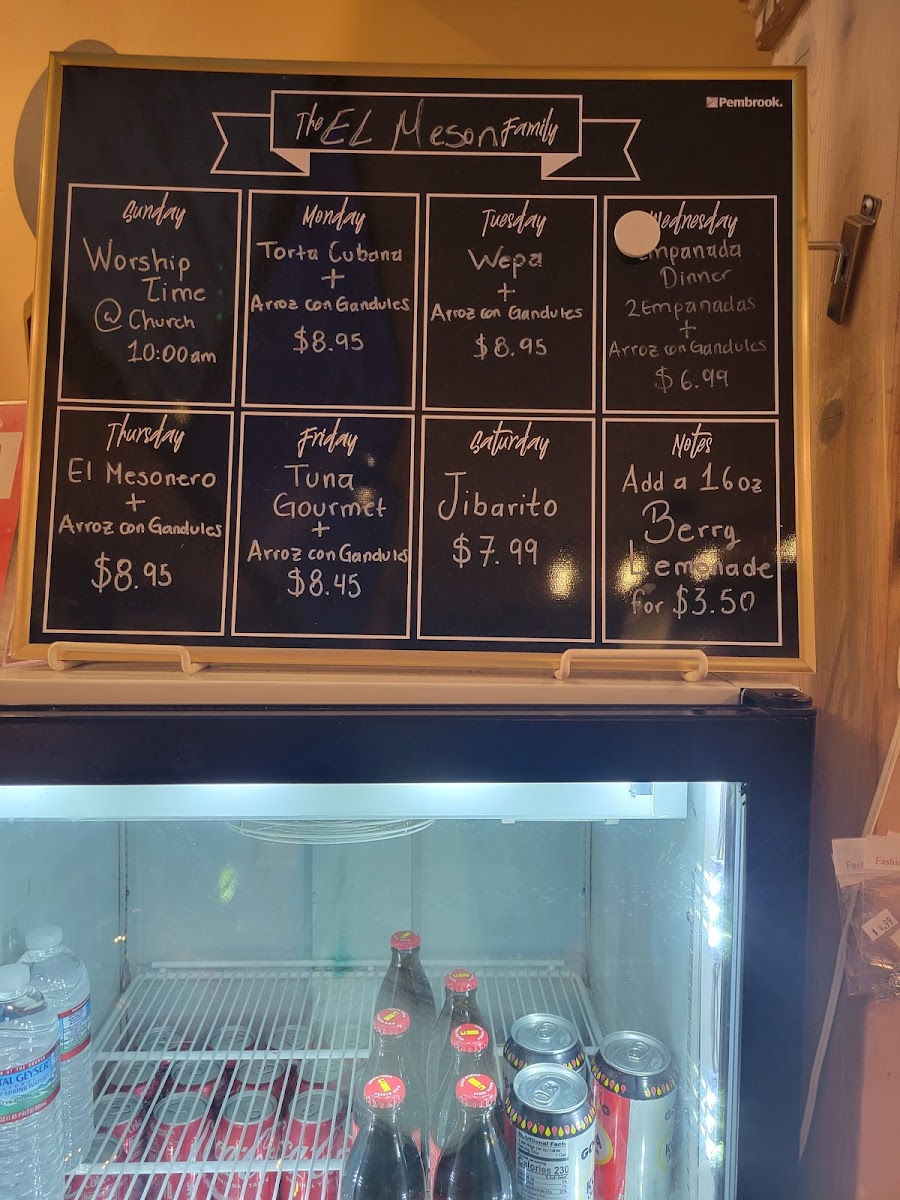 Pembrook.
The EL Meson Family
Sunday
Worship
Time
@ Church
10:00am
Monday
Torta Cubana
+
Arroz con Gandules
$8.95
Tuesday
Wepa
+
Arroz con Gandules
$8.95
Wednesday
Empanada
Dinner
2 Empanadas
+
Arroz con Gandules
$6.99
Thursday
El Mesonero
+
Arroz con Gandules
$8.95
Friday
Tuna
Gourmet
+
Arroz con Gandules
$8.45
Saturday
Jibarito
$7.99
Notes
Add a 16oz
Berry
Lemonade
for $3.50
TAL GEYSER
SPRING WATER
Nutrition Facts
Calories 230
Fashi